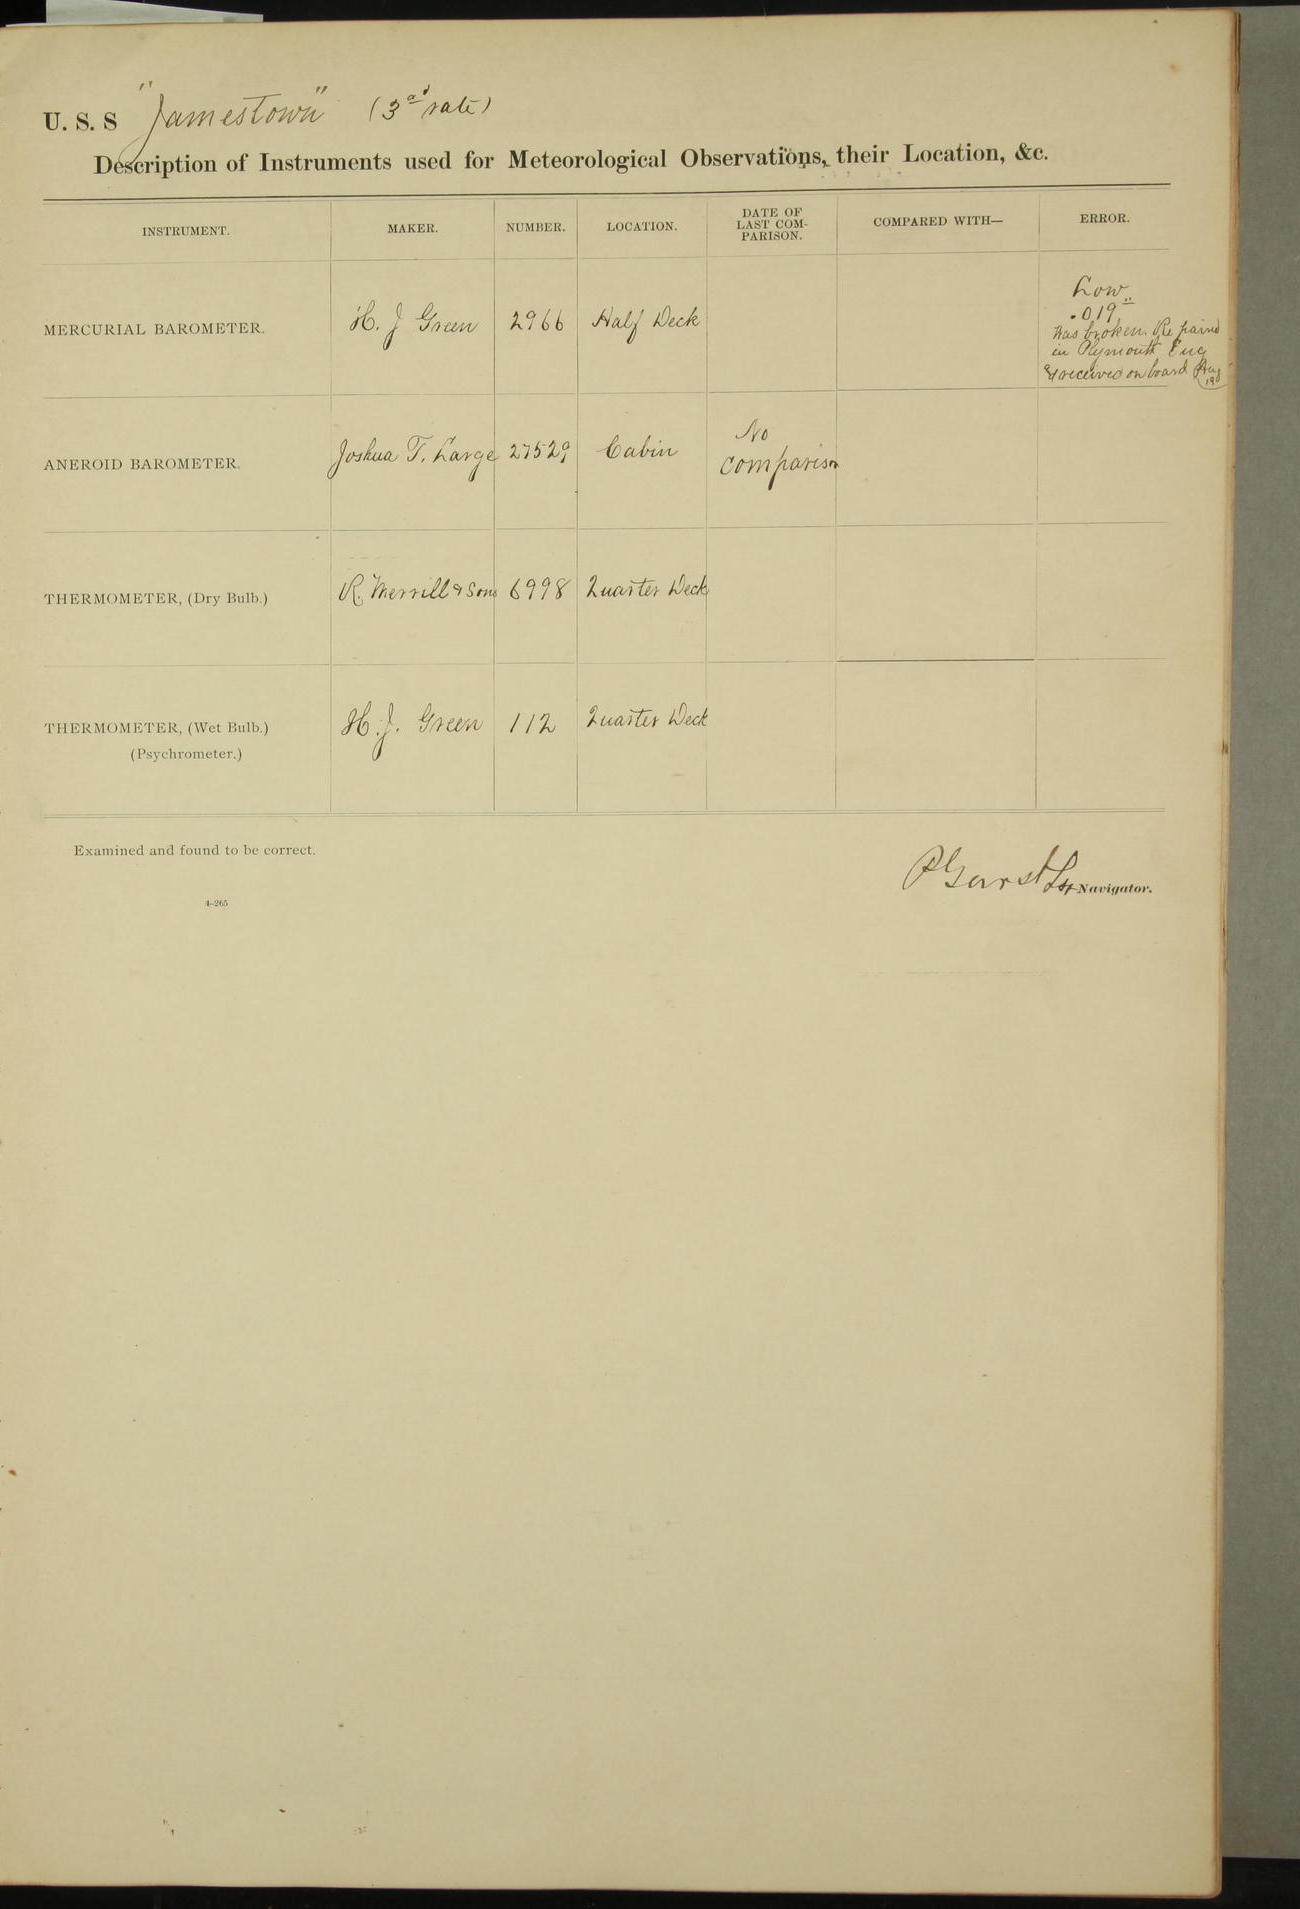 U. S. S "Jamestown" (3rd rate)
Description of Instruments used for Meteorological Observations, their Location, &c.
INSTRUMENT. MAKER. NUMBER. LOCATION. DATE OF LAST COM-PARISON. COMPARED WITH— ERROR.
MERCURIAL BAROMETER. H. J Green 2966 Half Deck
Low
.019"
Was broken. Repaired
in Plymouth Eng
& received on board Aug
19
ANEROID BAROMETER. Joshua T. Large 27529 Cabin
No
comparison
THERMOMETER, (Dry Bulb.) R. Merrill & Sons 6998 Quarter Deck
THERMOMETER, (Wet Bulb.) H. J. Green 112 Quarter Deck
(Psychrometer.)
Examined and found to be correct.
P Garst Lt Navigator.
4-265